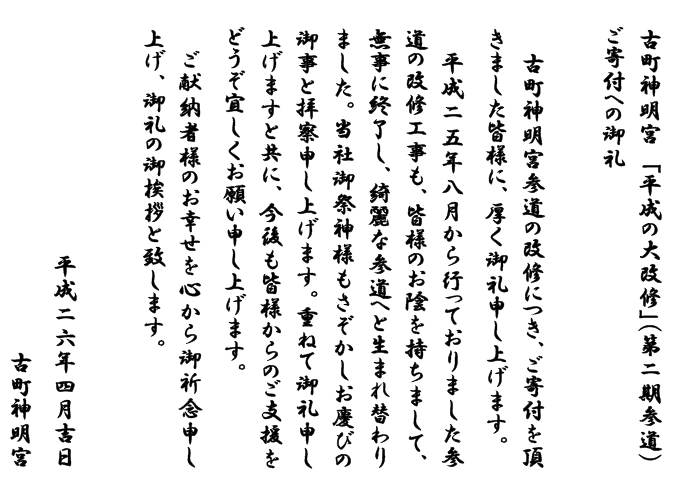 古町神明宮　「平成の大改修」（第二期参道）
ご寄付への御礼
古町神明宮参道の改修につき、ご寄付を頂
きました皆様に、厚く御礼申し上げます。
平成二五年八月から行っておりました参
道の改修工事も、皆様のお陰を持ちまして、
無事に終了し、綺麗な参道へと生まれ替わり
ました。当社御祭神様もさぞかしお慶びの
御事と拝察申し上げます。重ねて御礼申し
上げますと共に、今後も皆様からのご支援を
どうぞ宜しくお願い申し上げます。
ご献納者様のお幸せを心から御祈念申し
上げ、御礼の御挨拶と致します。
平成二六年四月吉日
古町神明宮